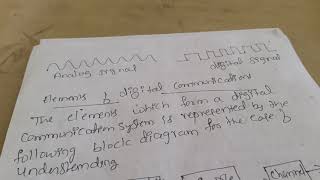 Analog signal
digital signal
Elements of digital Communication
The elements which form a digital
Communication system is represented by the
following block diagram for the ease of
Understanding
Channel